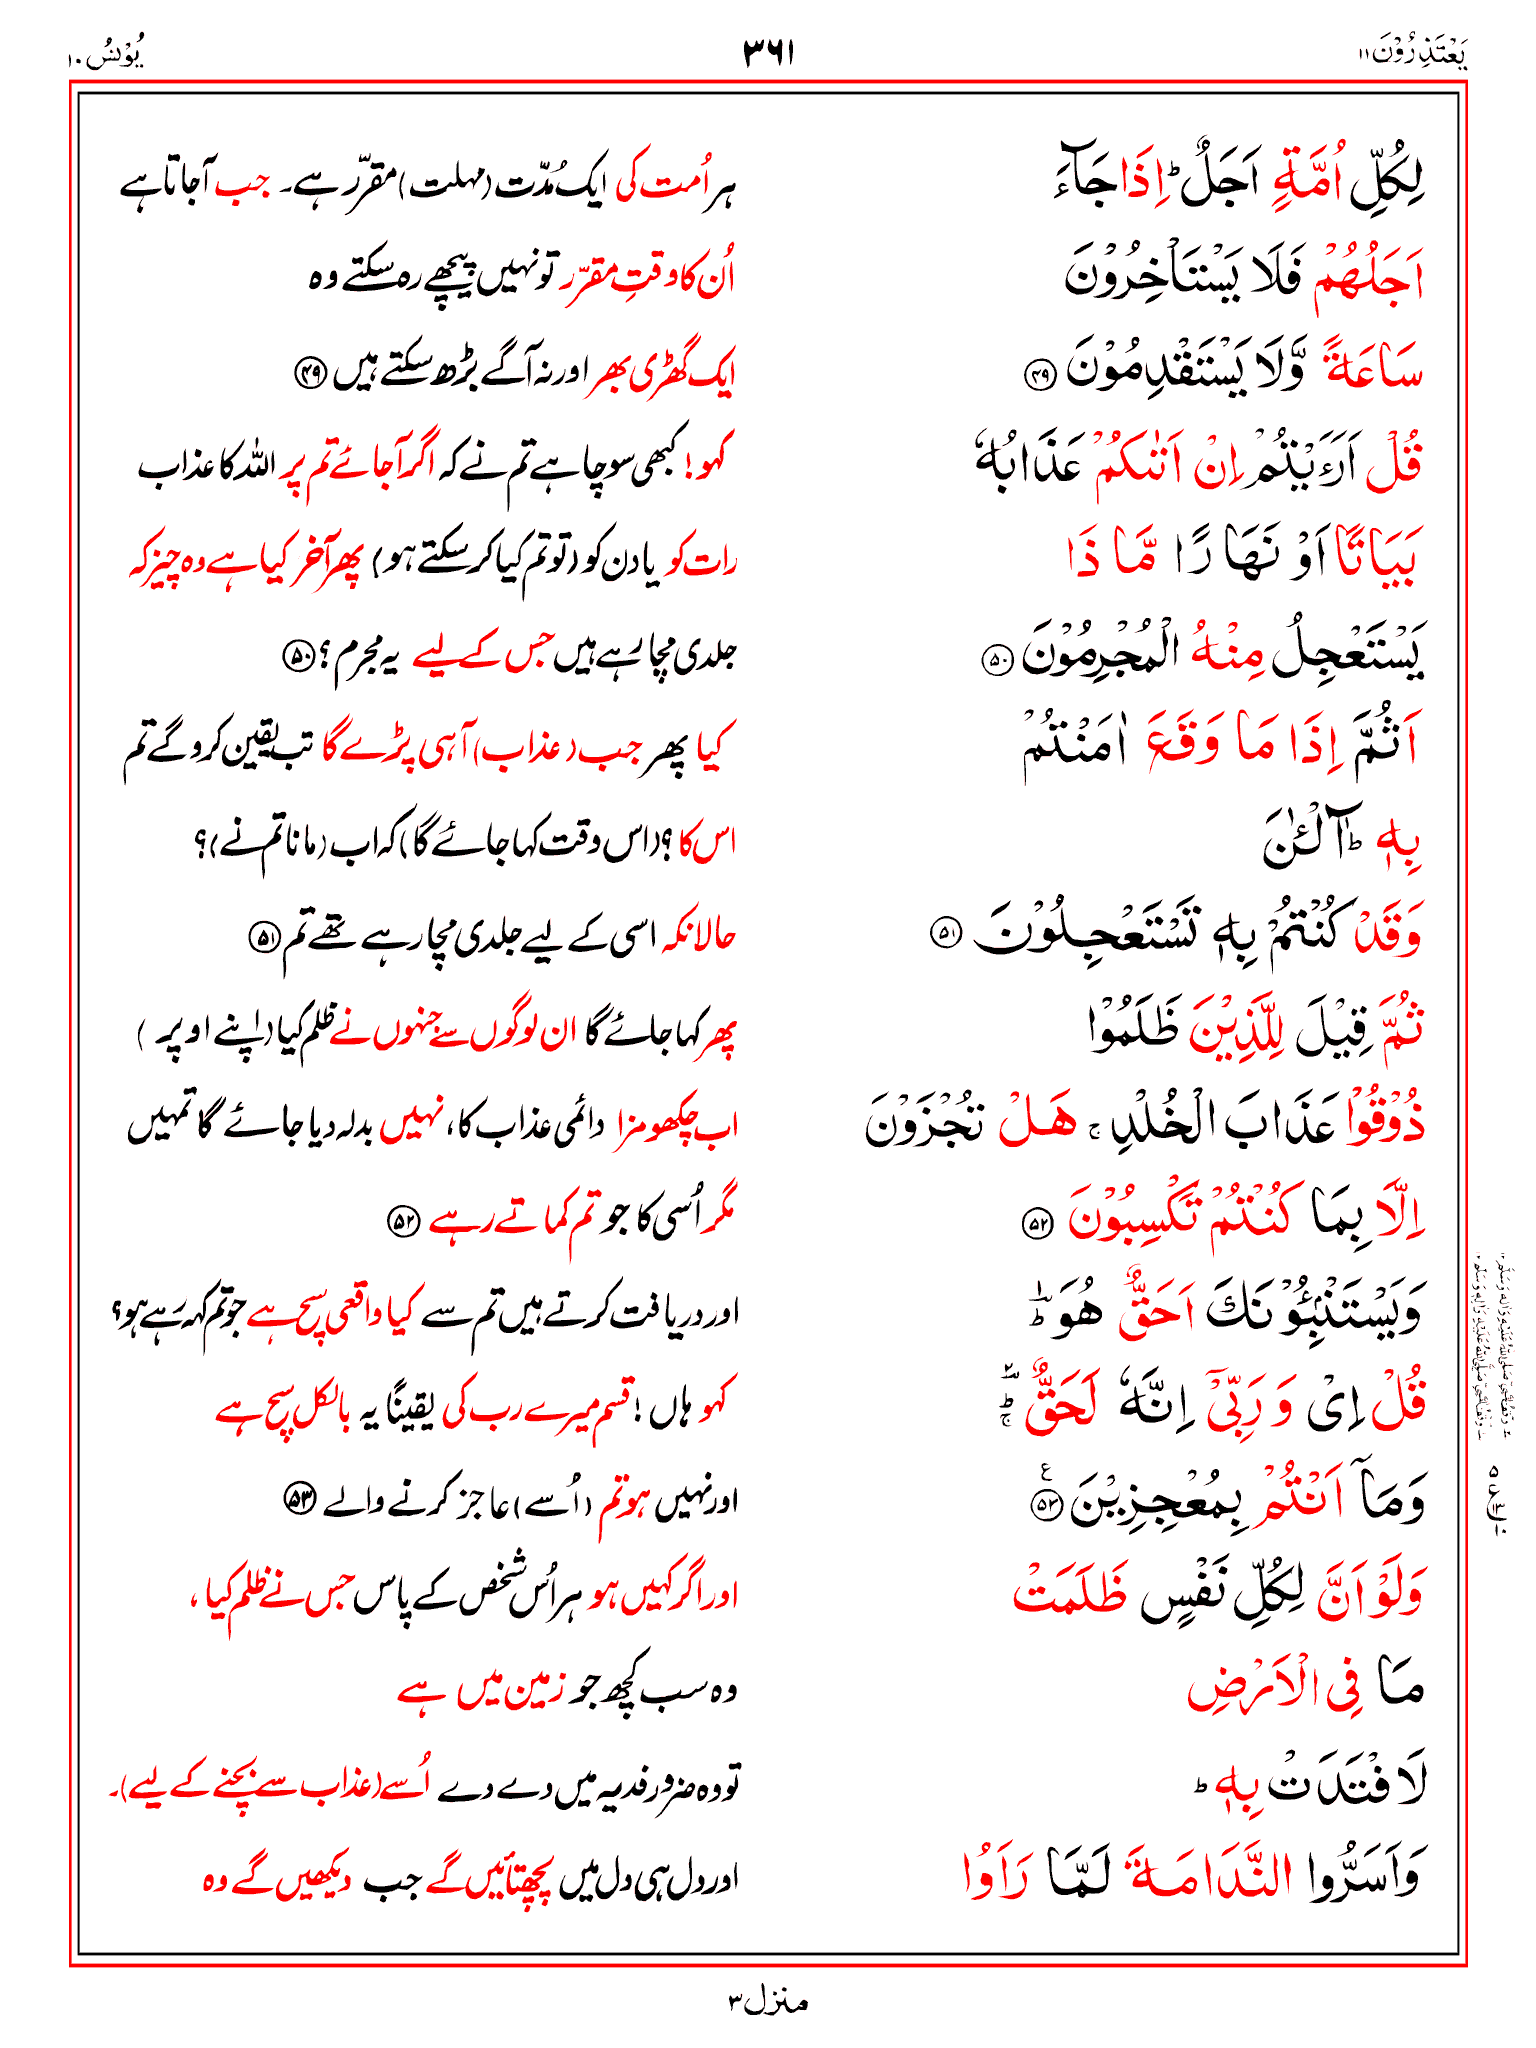 یَعْتَذِرُوْنَ ۱۱
۳۶۱
یُوْنُسُ ۱۰
لِكُلِّ اُمَّةٍ اَجَلٌ ؕ اِذَا جَآءَ
ہر اُمت کی ایک مُدّت (مہلت) مقرّر ہے۔ جب آجاتا ہے
اَجَلُهُمْ فَلَا یَسْتَاْخِرُوْنَ
اُن کا وقتِ مقرّر تو نہیں پیچھے رہ سکتے وہ
سَاعَةً وَّلَا یَسْتَقْدِمُوْنَ ﴿۴۹﴾
ایک گھڑی بھر اور نہ آگے بڑھ سکتے ہیں ﴿۴۹﴾
قُلْ اَرَءَیْتُمْ اِنْ اَتٰىكُمْ عَذَابُهٗ
کہو! کبھی سوچا ہے تم نے کہ اگر آجائے تم پر اللہ کا عذاب
بَیَاتًا اَوْ نَهَارًا مَّا ذَا
رات کو یا دن کو (تو تم کیا کر سکتے ہو) پھر آخر کیا ہے وہ چیز کہ
یَسْتَعْجِلُ مِنْهُ الْمُجْرِمُوْنَ ﴿۵۰﴾
جلدی مچا رہے ہیں جس کے لیے یہ مجرم؟ ﴿۵۰﴾
اَثُمَّ اِذَا مَا وَقَعَ اٰمَنْتُمْ
کیا پھر جب (عذاب) آہی پڑے گا تب یقین کرو گے تم
بِهٖ ؕ آٰلْـٰٔنَ
اس کا؟ (اس وقت کہا جائے گا) کہ اب (مانا تم نے)؟
وَقَدْ كُنْتُمْ بِهٖ تَسْتَعْجِلُوْنَ ﴿۵۱﴾
حالانکہ اسی کے لیے جلدی مچا رہے تھے تم ﴿۵۱﴾
ثُمَّ قِیْلَ لِلَّذِیْنَ ظَلَمُوْا
پھر کہا جائے گا ان لوگوں سے جنہوں نے ظلم کیا (اپنے اوپر )
ذُوْقُوْا عَذَابَ الْخُلْدِ ۚ هَلْ تُجْزَوْنَ
اب چکھو مزا دائمی عذاب کا، نہیں بدلہ دیا جائے گا تمہیں
اِلَّا بِمَا كُنْتُمْ تَكْسِبُوْنَ ﴿۵۲﴾
مگر اُسی کا جو تم کماتے رہے ﴿۵۲﴾
وَیَسْتَنْۢبِـُٔوْنَكَ اَحَقٌّ هُوَ ؕ
اور دریافت کرتے ہیں تم سے کیا واقعی سچ ہے جو تم کہہ رہے ہو؟
قُلْ اِیْ وَرَبِّیْۤ اِنَّهٗ لَحَقٌّ ؕ
کہو ہاں! قسم میرے رب کی یقینًا یہ بالکل سچ ہے
وَمَاۤ اَنْتُمْ بِمُعْجِزِیْنَ ﴿۵۳﴾
اور نہیں ہو تم (اُسے) عاجز کرنے والے ﴿۵۳﴾
وَلَوْ اَنَّ لِكُلِّ نَفْسٍ ظَلَمَتْ
اور اگر کہیں ہو ہر اُس شخص کے پاس جس نے ظلم کیا،
مَا فِی الْاَرْضِ
وہ سب کچھ جو زمین میں ہے
لَافْتَدَتْ بِهٖ ؕ
تو وہ ضرور فدیہ میں دے دے اُسے (عذاب سے بچنے کے لیے)۔
وَاَسَرُّوا النَّدَامَةَ لَمَّا رَاَوُا
اور دل ہی دل میں پچھتائیں گے جب دیکھیں گے وہ
منزل ۳